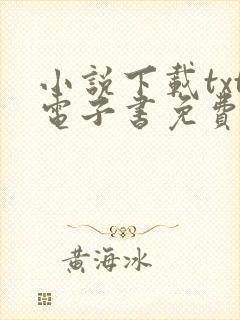 小說下載txt
電子書免費
黃海冰